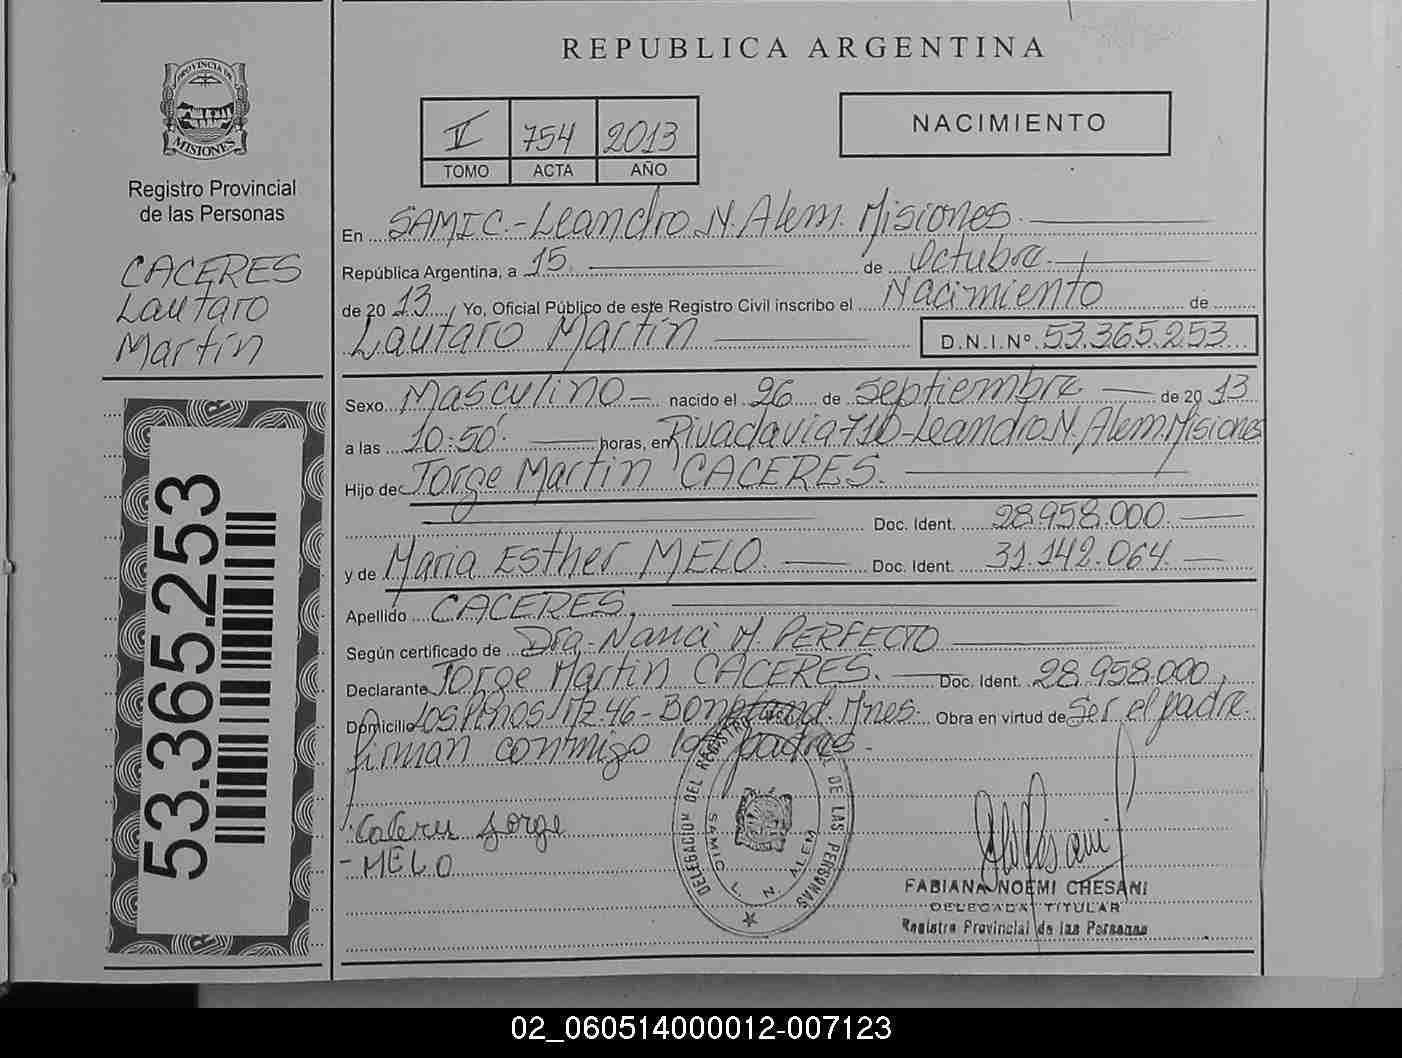 REPUBLICA ARGENTINA
PROVINCIA DE
MISIONES
Registro Provincial
de las Personas
CACERES
Lautaro
Martín
53.365.253
V 754 2013
TOMO ACTA AÑO
NACIMIENTO
En SAMIC.-Leandro N. Alem. Misiones.
República Argentina, a 15. de Octubre.
de 2013, Yo, Oficial Público de este Registro Civil inscribo el Nacimiento de
Lautaro Martín D.N.I.Nº 53.365.253
Sexo Masculino nacido el 26 de septiembre de 2013
a las 10:50. horas, en Rivadavia 710-Leandro N. Alem. Misiones
Hijo de Jorge Martin CACERES.
Doc. Ident. 28.958.000.
y de Maria Esther MELO. Doc. Ident. 31.142.064.
Apellido CACERES,
Según certificado de Dra. Nanci M. PERFECTO
Declarante Jorge Martin CACERES. Doc. Ident. 28.958.000,
Domicilio Los Pinos Mz 46- Bompland. Mnes. Obra en virtud de Ser el padre.
firman conmigo los padres.
Caceres Jorge
- MELO
DELEGACION DEL REGISTRO DE LAS PERSONAS
SAMIC L. N. ALEM
FABIANA NOEMI CHESANI
DELEGADA TITULAR
Registro Provincial de las Personas
02_060514000012-007123